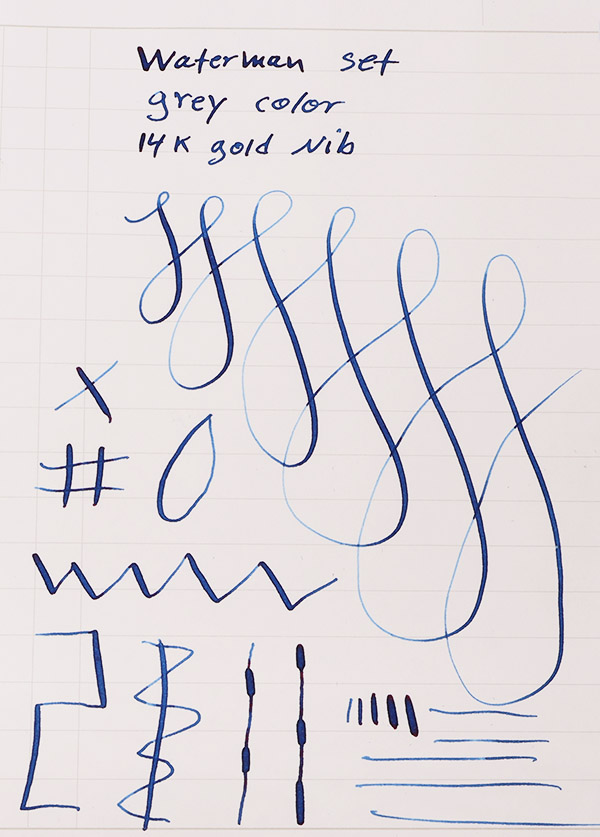 Waterman set
grey color
14K gold Nib